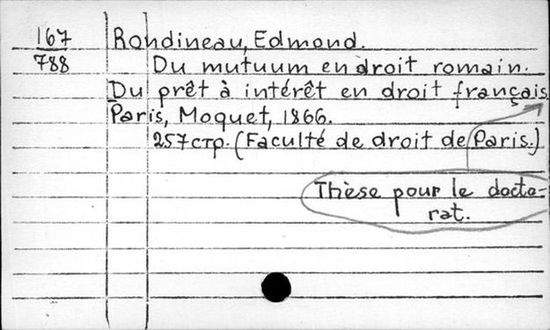 167 Rondineau, Edmond.
788 Du mutuum en droit romain.
Du prêt à intérêt en droit français
Paris, Moquet, 1866.
257стр. (Faculté de droit de Paris.)
Thèse pour le docto-
rat.